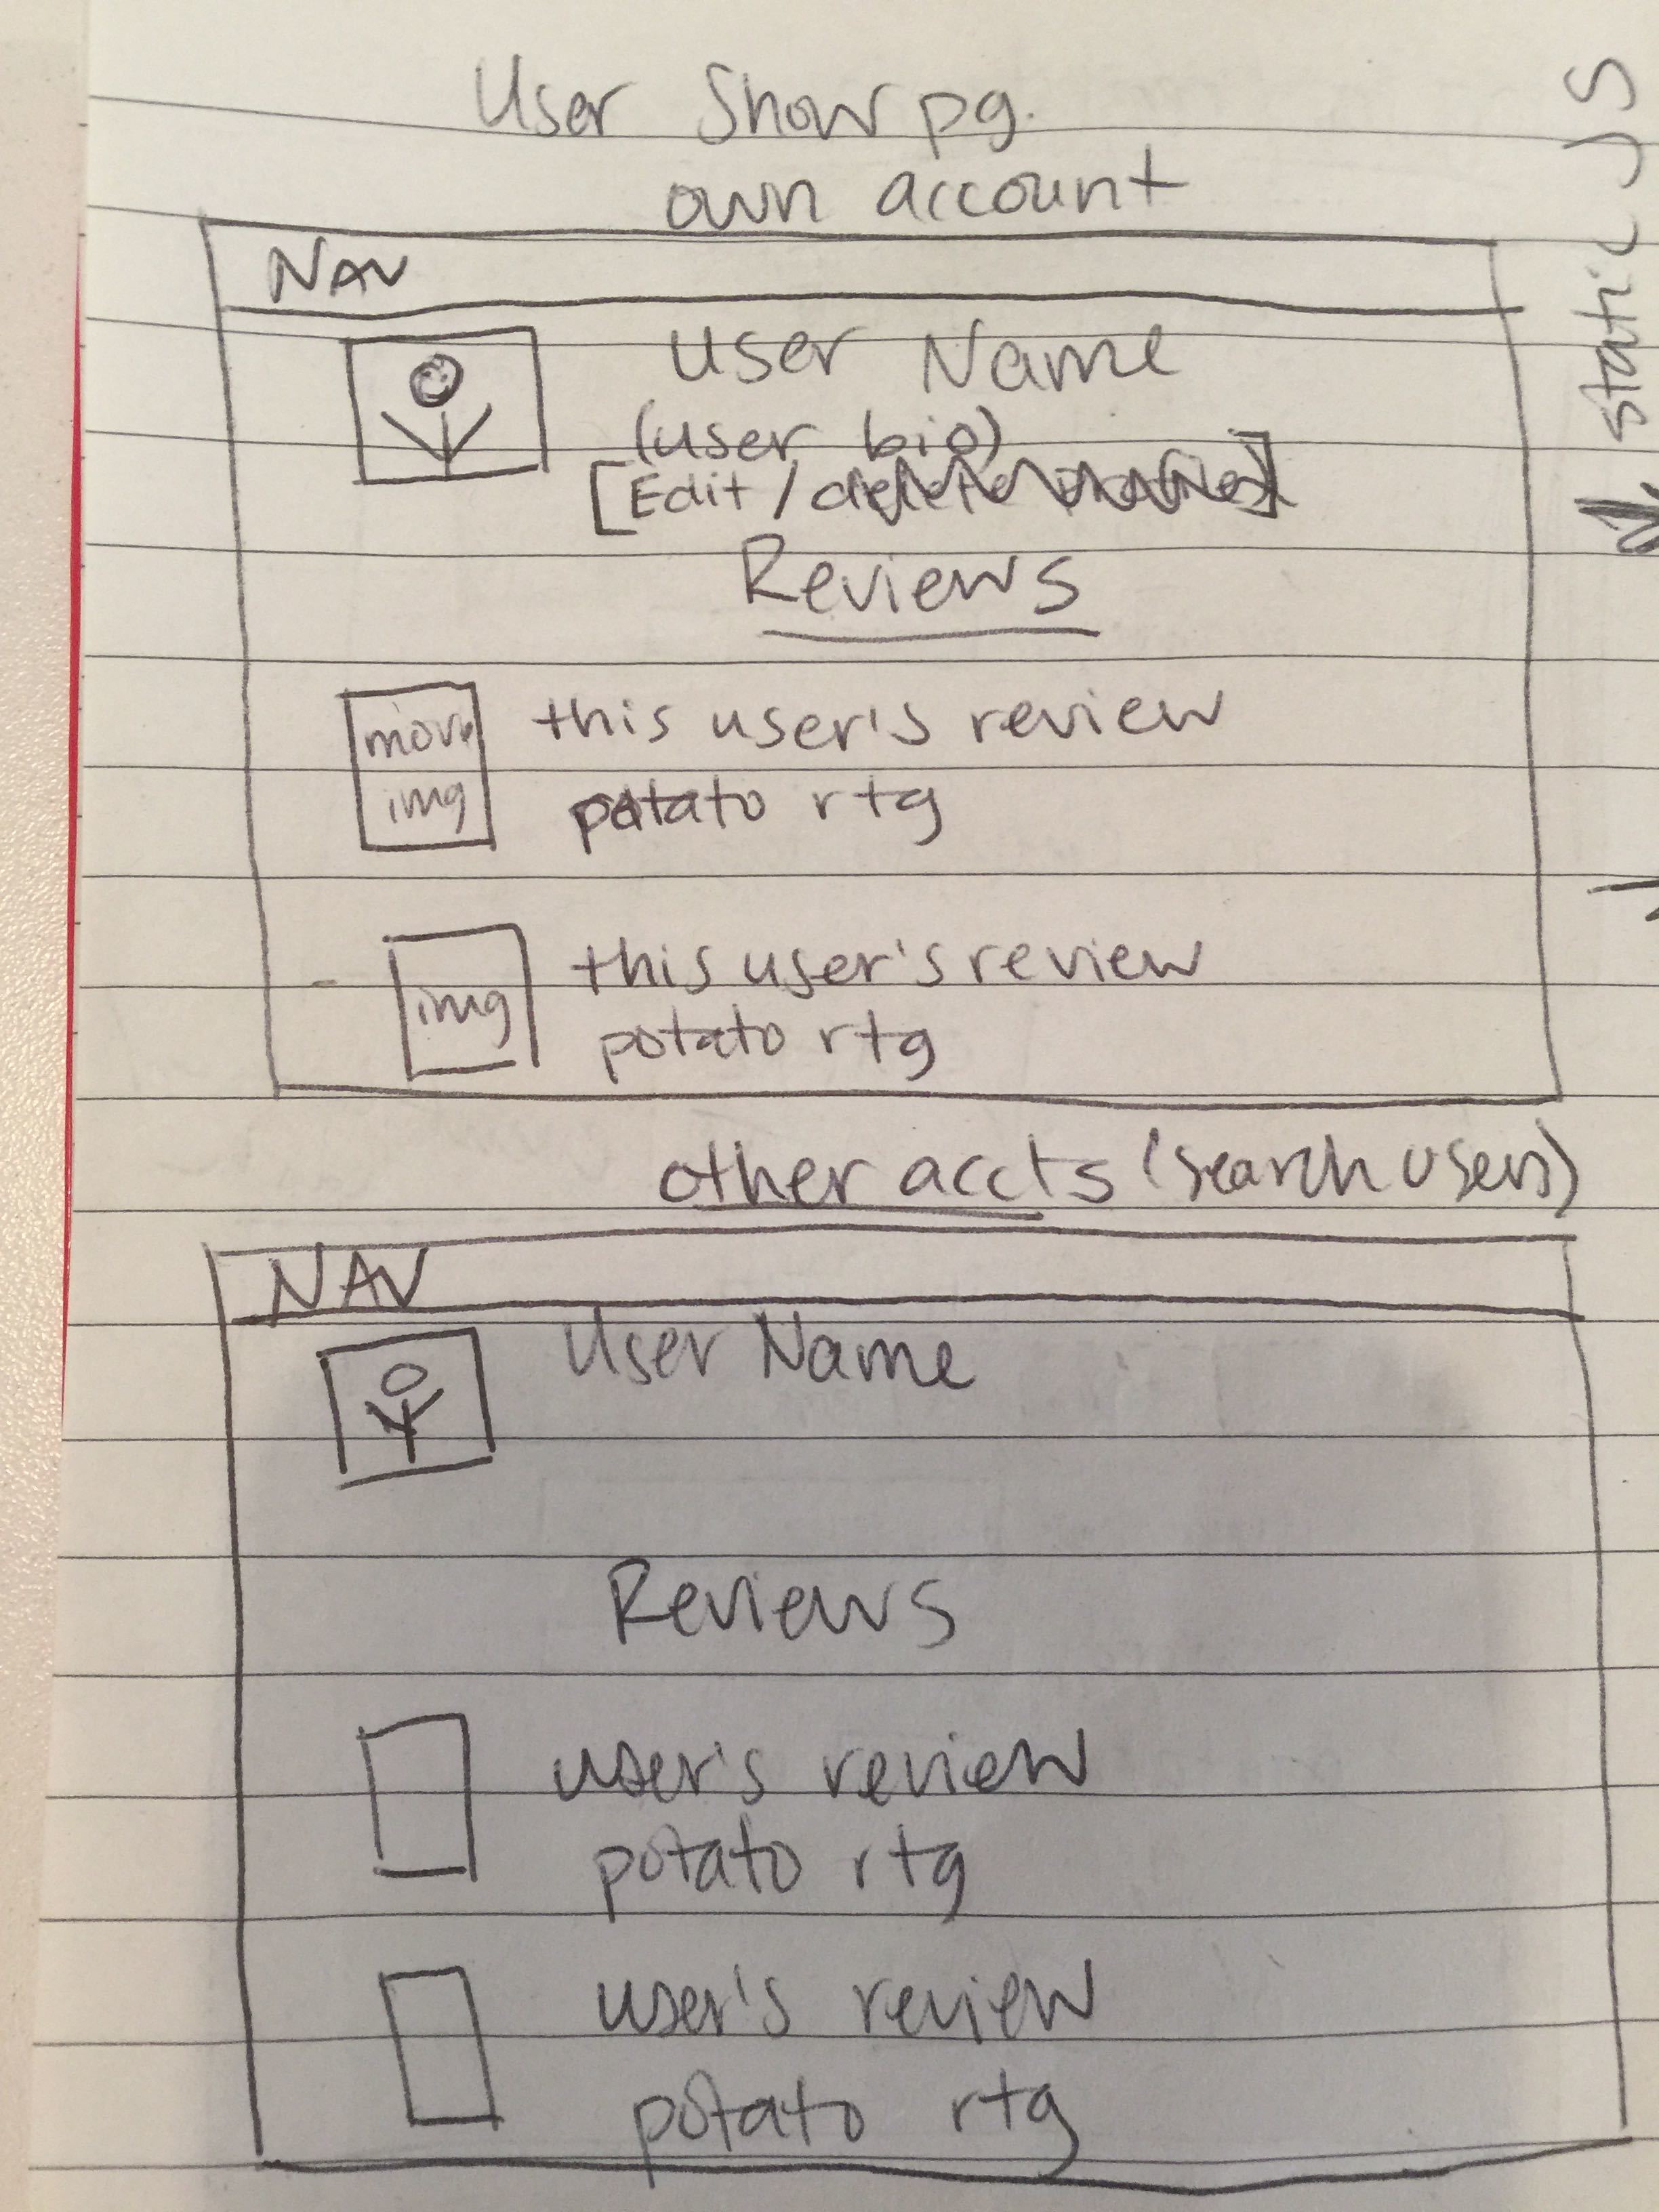 User Show pg.
own account
NAV
User Name
(user bio)
[Edit / delete]
Reviews
movie
img
this user's review
potato rtg
img
this user's review
potato rtg
other accts (search users)
NAV
User Name
Reviews
user's review
potato rtg
user's review
potato rtg
static JS